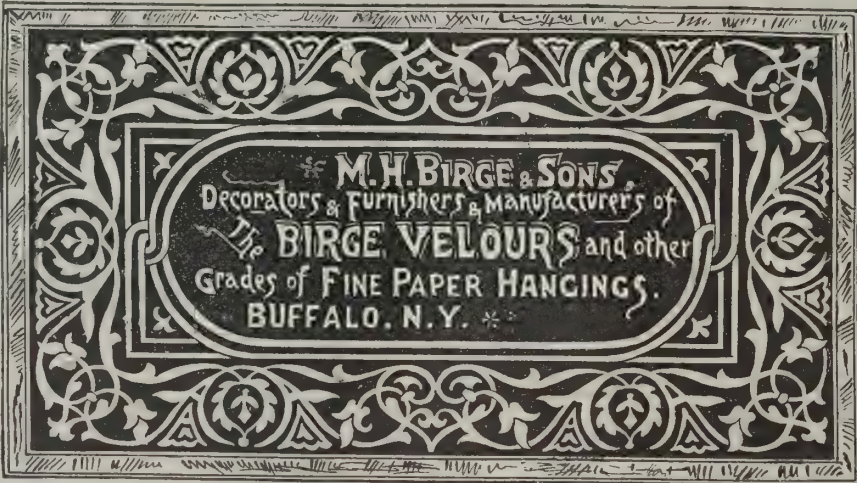 M. H. BIRGE & SONS,
Decorators & Furnishers & Manufacturers of
The BIRGE VELOURS and other
Grades of FINE PAPER HANGINGS.
BUFFALO. N.Y.